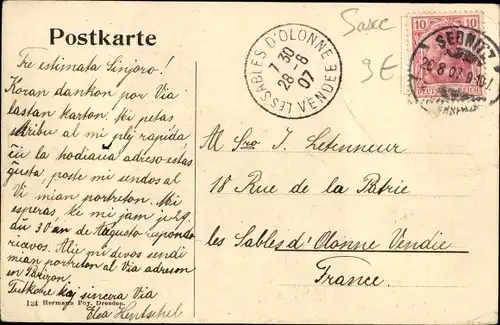 Postkarte
Saxe
9E
LES SABLES D'OLONNE VENDEE
7 30
28 - 8
07
10 10
DEUTSCHES REICH
SEBNITZ
26.8.07.9-10
Tre estimata Sinjoro!
Koran dankon por Via
lastan karton. Mi petas
skribu al mi plej rapida
ĉu la hodiaŭa adreso estas
gusta poste mi sendos al
Vi mian portreton. Mi
esperas, ke mi jam je 29.
du 30 an de Aŭgusto respondo
ricevos. Alie mi devos sendi
mian portreton al Via adreson
en Parizon.
Tutkore kaj sincera Via
Elsa Hentschel
M Sro J. Letenneur
18 Rue de la Patrie
les Sables d'Olonne Vendie
France.
124 Hermann Poy, Dresden.